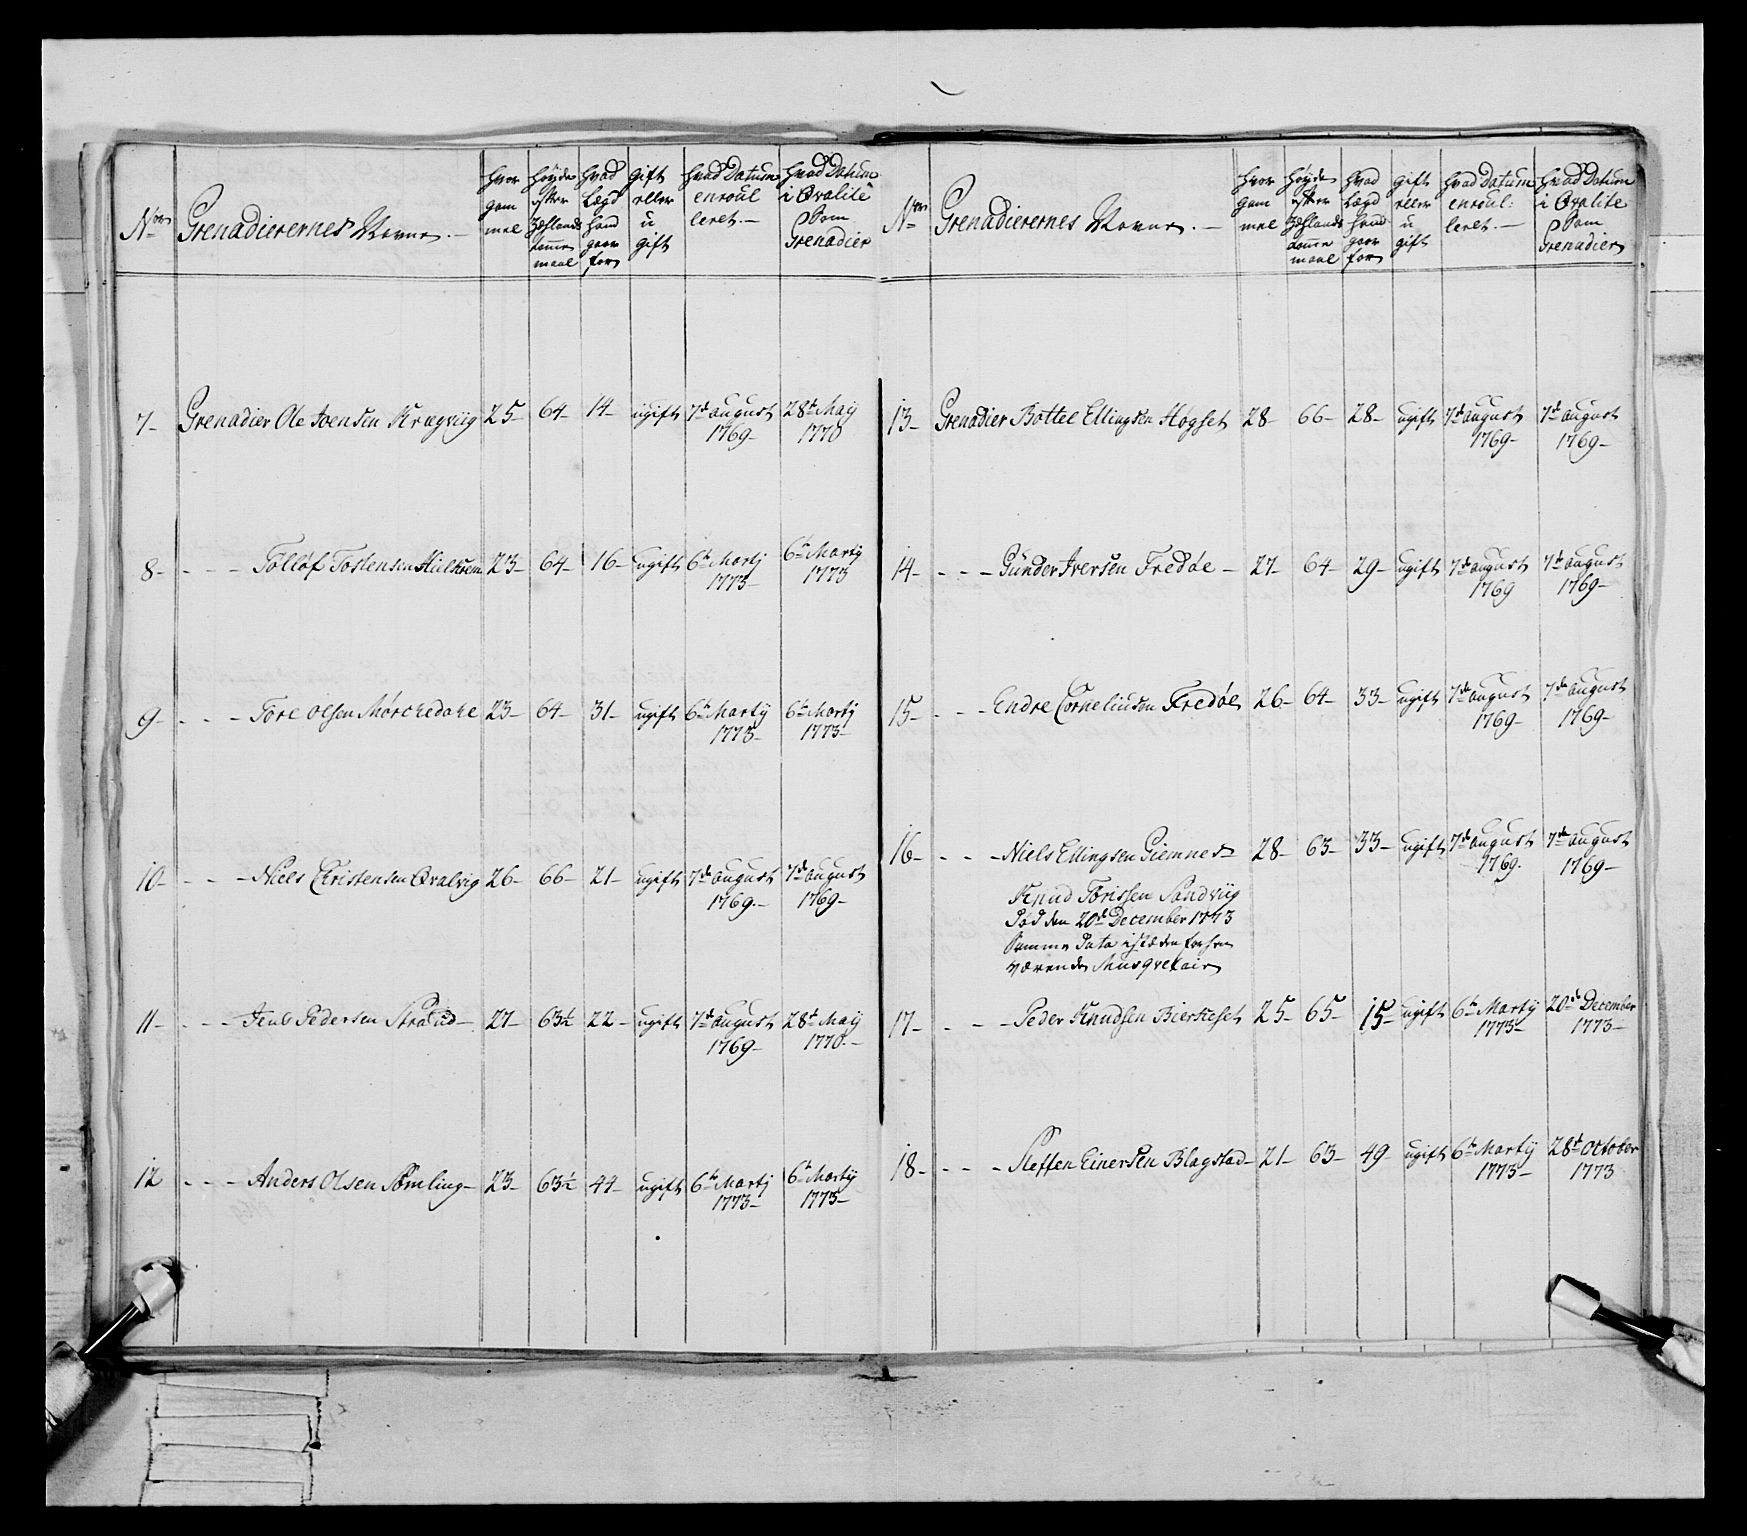 Nor Grenadierernes Navne. — hvor gammel høyde efter Zoflands tomme maal hvad Lægd hand gaar for gift eller u gift hvad Datum enroulleret. — hvad Datum i Qvalite som Grenadier
7 – Grenadier Ole Joensen Kragviig 25 – 64 – 14 – ugift 7de august 28de Maij
1769 – 1770
8 – – – – Tolløf Tostensen 23 – 64 – 16 – ugift 6te Martj 6te Martij
1773 – 1773
9 – – – – Tore olsen Mørchedahe 23 – 64 – 31 – ugift 6te Martij 6te Martij
1773 – 1773 –
10 – – – – Niels Christensen Qvalvig 26 – 66 – 21 – ugift 7de august 7de august
1769. – 1769 –
11 – – – – Jens Pedersen Strand – 27 – 63½ 22 – ugift 7de august 28de Maij
1769 – 1770. –
12 – – – Anders Olsen Sømling – 23 – 63½ 44 – ugift 6te Martj 6te Martij
1773 – 1773 –
Nor Grenadierernes Navne. — hvor gammel høyde efter Zoflands tomme maal hvad Lægd hand gaar for gift eller u gift hvad Datum enroul: leret. — hvad Datum i Qvalite som Grenadier
13 – Grenadier Bottel Ellingsen Hogset 28 – 66 – 28 – ugift 7de august 7de august
1769 – 1769 –
14 – – – – Gunder Iversen Fredøe – 27 – 64 – 29 – ugift 7de august 7de august
1769 1769 –
15 – – – – Endre Corneliusen Fredøe 26 – 64 – 33 – ugift 7de august 7de august
1769 – 1769 –
16 – – – – Niels Ellingsen Giemnes – 28 – 63 – 33 – ugift 7de august 7de august
1769. 1769 –
Knud Torissen Sandviig
Død den 20de December 1773
Samme Dato istæden forhen
værende Musqvetair
17 – – – – Peder Knudsen Bierkeset 25 – 65 – 15 – ugift 6te Martij 20de December
1773 – 1773 –
18 – – – – Steffen Einersen Blagstad – 21 – 63 – 49 – ugift 6te Martij 28de October
1773 – 1773